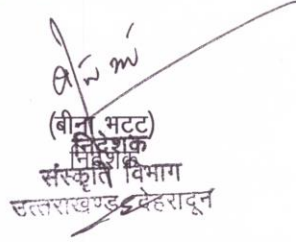 (बीना भटट)
निदेशक
निदेशक
संस्कृति विभाग
उत्तराखण्ड देहरादून